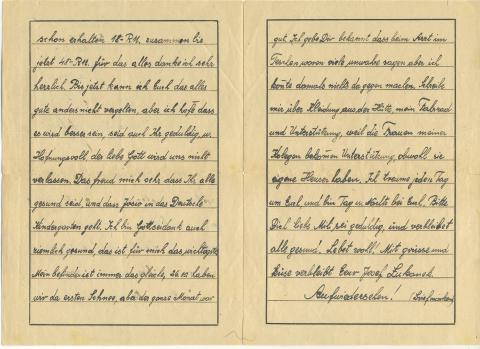 schon erhalten 18-RM. zusammen bis
jetzt 48-RM. für das alles danke ich sehr
herzlich. Bis jetzt kann ich Euch das alles
gute anders nicht vergolten, aber ich hoffe dass
es wird besser sein, seid auch Ihr geduldig, u.
Hofnungsvoll, der liebe Gott wird uns nicht
verlassen. Das freud mich sehr dass Ihr alle
gesund seid, und dass Josio in das Deutsche
Kindergarten geht. Ich bin Gottseidank auch
ziemlich gesund, das ist für mich das wichtigste
Mein befinden ist immer das Gleiche, 26.10 haben
wir da ersten Schnee, aber der ganze Monat war
gut. Ich gebe Dir bekannt dass beim Arzt im
waren viele sagen aber ich
konte damals nichts da gegen machen. Schreibe
mir über Kleidung aus der Hütte, mein Fahrrad
und Unterstützung, weil die Frauen meiner
Kolegen bekomen Unterstützung, obwohl sie
eigene Heuser haben. Ich traume jeden Tag
um Euch, und bin Tag u. Nacht bei Euch, Bitte
Dich liebe sei geduldig, und verbleibet
alle gesund! Lebet wohl! Mit grüsse und
küsse verbleibt Euer Josef Lukanek
Aufwiedersehen! (Briefmarken)